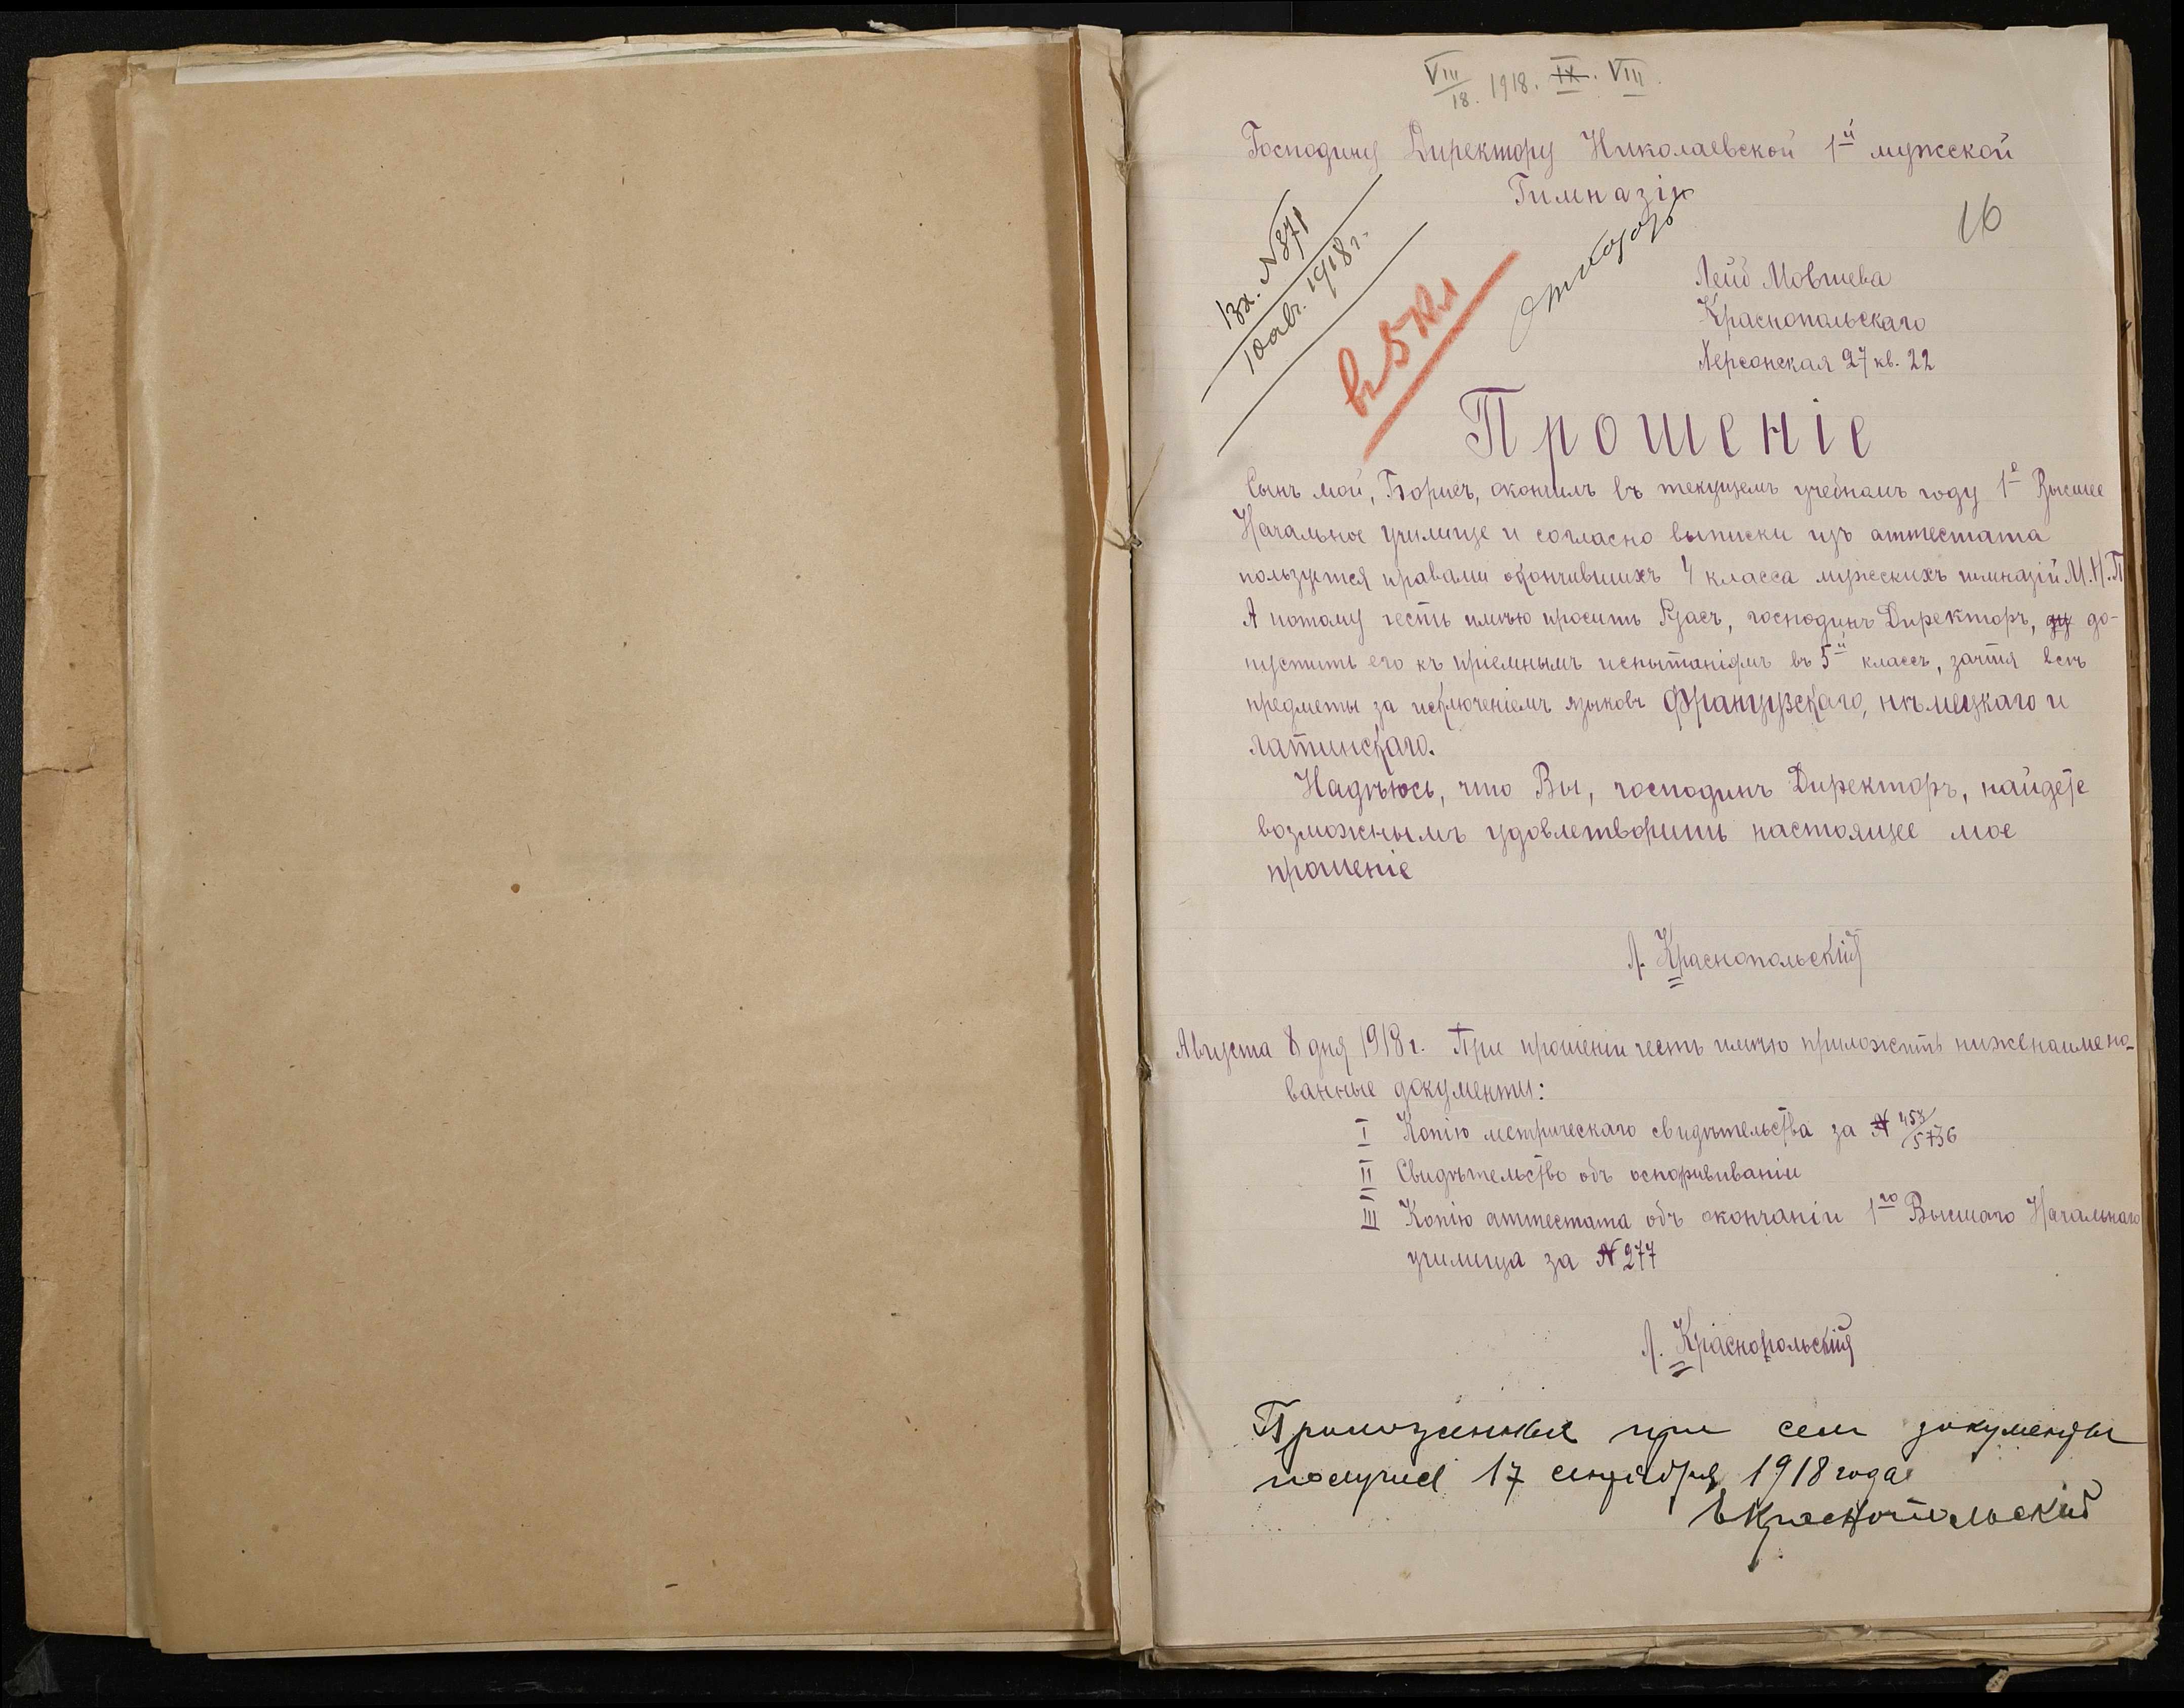 VIII/18. 1918. IX. VIII.
Господину Директору Николаевской 1й мужской
Гимназіи
16
Вх. №871
10 авг. 1918 г.
въ 5 кл
Лейб Мовшева
Краснопольскаго
Херсонская 27 кв. 22
Прошеніе
Сынъ мой, Борисъ, окончилъ въ текущемъ учебномъ году 1е Высшее
Начальное училище и согласно выписки изъ аттестата
пользуется правами окончившихъ 4 класса мужескихъ гимназій М.Н.П
А потому честь имѣю просить Васъ, господинъ Директоръ, до-
пустить его къ пріемнымъ испытаніямъ въ 5й классъ, зачтя всѣ
предметы за исключеніемъ языковъ Французскаго, нѣмецкаго и
латинскаго.
Надѣюсь, что Вы, господинъ Директоръ, найдете
возможнымъ удовлетворить настоящее мое
прошеніе
Л. Краснопольскій
Августа 8 дня 1918 г. При прошеніи честь имѣю приложить нижепоимено-
ванные документы:
I Копію метрическаго свидѣтельства за № 453/5736
II Свидѣтельство объ оспопрививаніи
III Копію аттестата объ окончаніи 1го Высшаго Начальнаго
училища за №277
Л. Краснопольскій
Приложенные при сем документы
получил 17 сентября 1918 года
Краснопольский